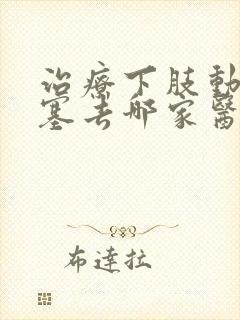 治療下肢動
塞去哪家醫
布達拉